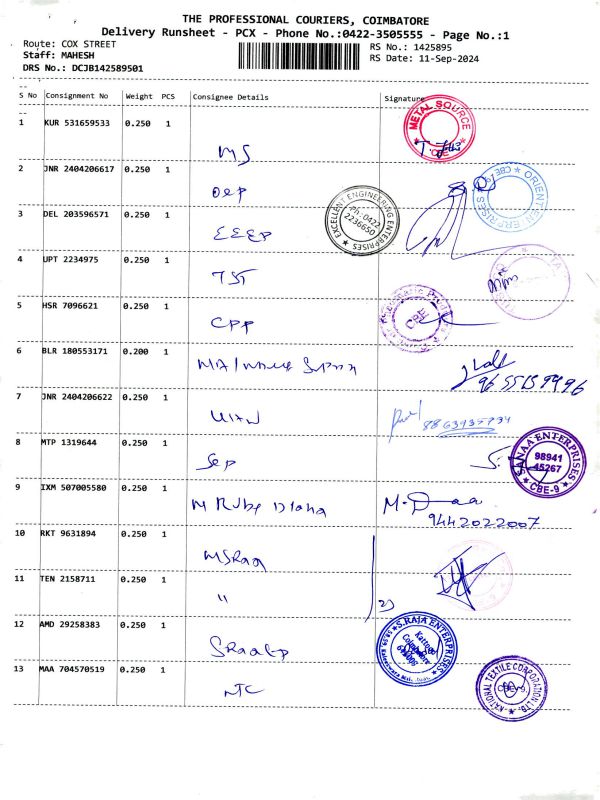 THE PROFESSIONAL COURIERS, COIMBATORE
Delivery Runsheet - PCX - Phone No.:0422-3505555 - Page No.:1
Route: COX STREET
Staff: MAHESH
DRS No.: DCJB142589501
RS No.: 1425895
RS Date: 11-Sep-2024
S No Consignment No Weight PCS Consignee Details Signature
1 KUR 531659533 0.250 1 MS
METAL SOURCE
2 JNR 2404206617 0.250 1 OEP
ORIENT ENTERPRISES CBE
3 DEL 203596571 0.250 1 EEEP
EXCELLENT ENGINEERING ENTERPRISES
Ph-0422
2236650
4 UPT 2234975 0.250 1 TST
5 HSR 7096621 0.250 1 CPP
CBE
6 BLR 180553171 0.200 1
7 JNR 2404206622 0.250 1
8863937734
8 MTP 1319644 0.250 1 Sep
SANAA ENTERPRISES
98941
45267
CBE-9
9 IXM 507005580 0.250 1
9442022007
10 RKT 9631894 0.250 1
11 TEN 2158711 0.250 1 "
12 AMD 29258383 0.250 1
S.RAJA ENTERPRISES
13 MAA 704570519 0.250 1 NTC
NATIONAL TEXTILE CORPORATION LTD.
CBE-9